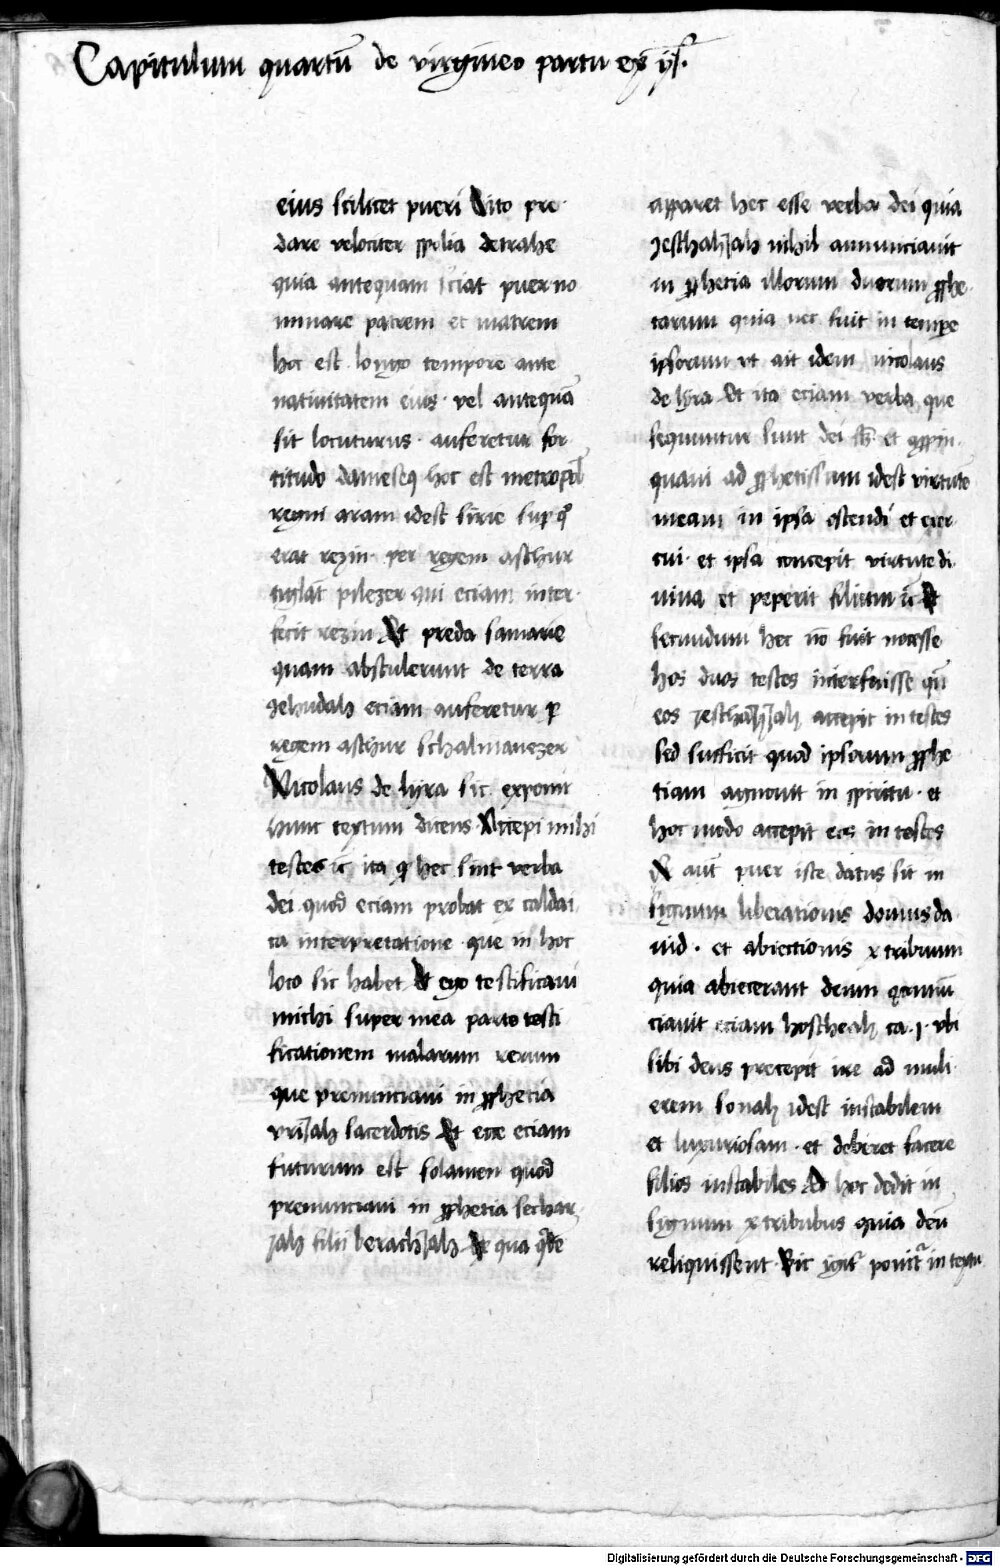 Capitulum quartū de virgineo partu ex ys.
eius scilicet pueri Cito pre
dare velociter spolia detrahe
quia antequam sciat puer no
minare patrem et matrem
hoc est longo tempore ante
nativitatem eius · vel antequā
sit locuturus · auferetur for
titudo dameseq hoc est metropol
regni aram idest sirie sup q̄
erat rezin · per regem aschur
tiglat pilezer qui eciam inter
fecit rezin Et preda samarie
quam abstulerunt de terra
Jehudah eciam auferetur p
regem aschur schalmanezer
Nicolaus de lyra sic exponit
hunc textum dicens Accepi mihi
testes ⁊c̄ ita q̄ hec sint verba
dei quod eciam probat ex caldai
ca interpretatione que in hoc
loco sic habet Et ego testificavi
michi super mea parte testi
ficationem malarum rerum
que prenunciavi in ꝓphetia
vriJah sacerdotis Et ecce eciam
futurum est solamen quod
prenunciavi in ꝓphetia sechar
Jah filii berachJah Ex qua q̄de
apparet hec esse verba dei quia
JeschahJah nihil annunciavit
in ꝓphetia illorum duorum ꝓphe
tarum quia nec fuit in tempe
ipsorum vt ait idem nicolaus
de lyra Et ita eciam verba que
sequuntur sunt dei et
quavi ad ꝓphetissam idest virtutē
meam in ipsa ostendi et exer
cui · et ipsa concepit virtute di
vina et peperit filium ⁊c̄ Et
secundum hec nō fuit necesse
hos duos testes interfuisse qn̄
eos JeschahJah accepit in testes
sed sufficit quod ipsorum ꝓphe
tiam agnovit in spiritu · et
hoc modo accepit eos in testes
Q aut puer iste datus sit in
signum liberationis domus da
vid · et abiectionis x tribuum
quia abiecerant deum
ciavit eciam hoscheah ca · 1 · vbi
sibi deus precepit ire ad muli
erem sonah idest instabilem
et luxuriosam · et deberet facere
filios instabiles Et hoc dedit in
signum x tribubus quia deū
reliquissent Sic igit̄ ponit̄ in textu
Digitalisierung gefördert durch die Deutsche Forschungsgemeinschaft - DFG